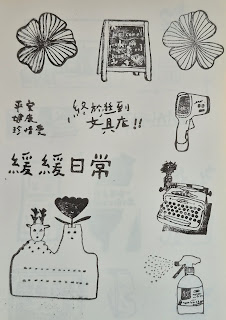 Welcome
平安
健康
珍惜愛
終於 到
文具店!!
緩緩日常